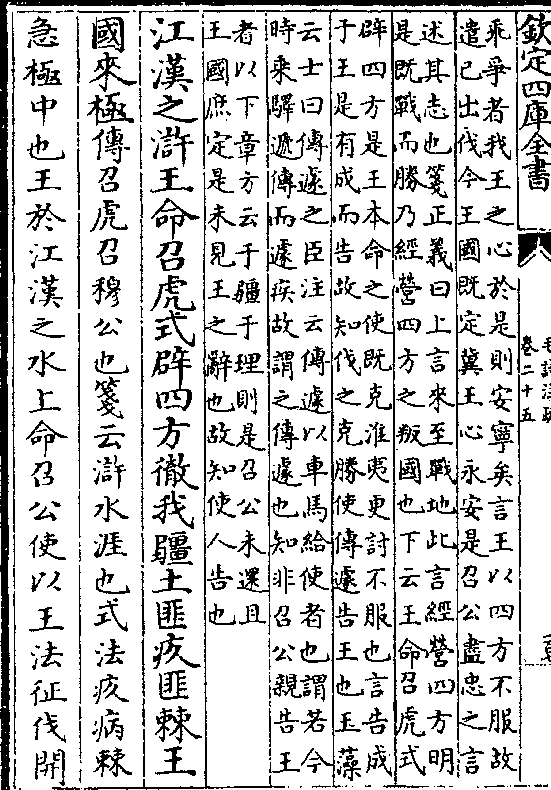 欽定四庫全書
毛詩注疏
卷二十五
乖爭者我王之心於是則安寧矣言王以四方不服故
遣已出伐今王國既定冀王心永安是召公盡忠之言
述其志也箋正義曰上言來至戰地此言經營四方明
是既戰而勝乃經營四方之叛國也下云王命召虎式
辟四方是王本命之使既克淮夷更討不服也言告成
于王是有成而告故知伐之克勝使傳遽告王也玉藻
云士曰傳遽之臣注云傳遽以車馬給使者也謂若今
時乘驛遞傳而遽疾故謂之傳遽也知非召公親告王
者以下章方云于疆于理則是召公未還且
王國庶定是未見王之辭也故知使人告也
江漢之滸王命召虎式辟四方徹我疆土匪疚匪棘王
國來極傳召虎召穆公也箋云滸水涯也式法疚病棘
急極中也王於江漢之水上命召公使以王法征伐開